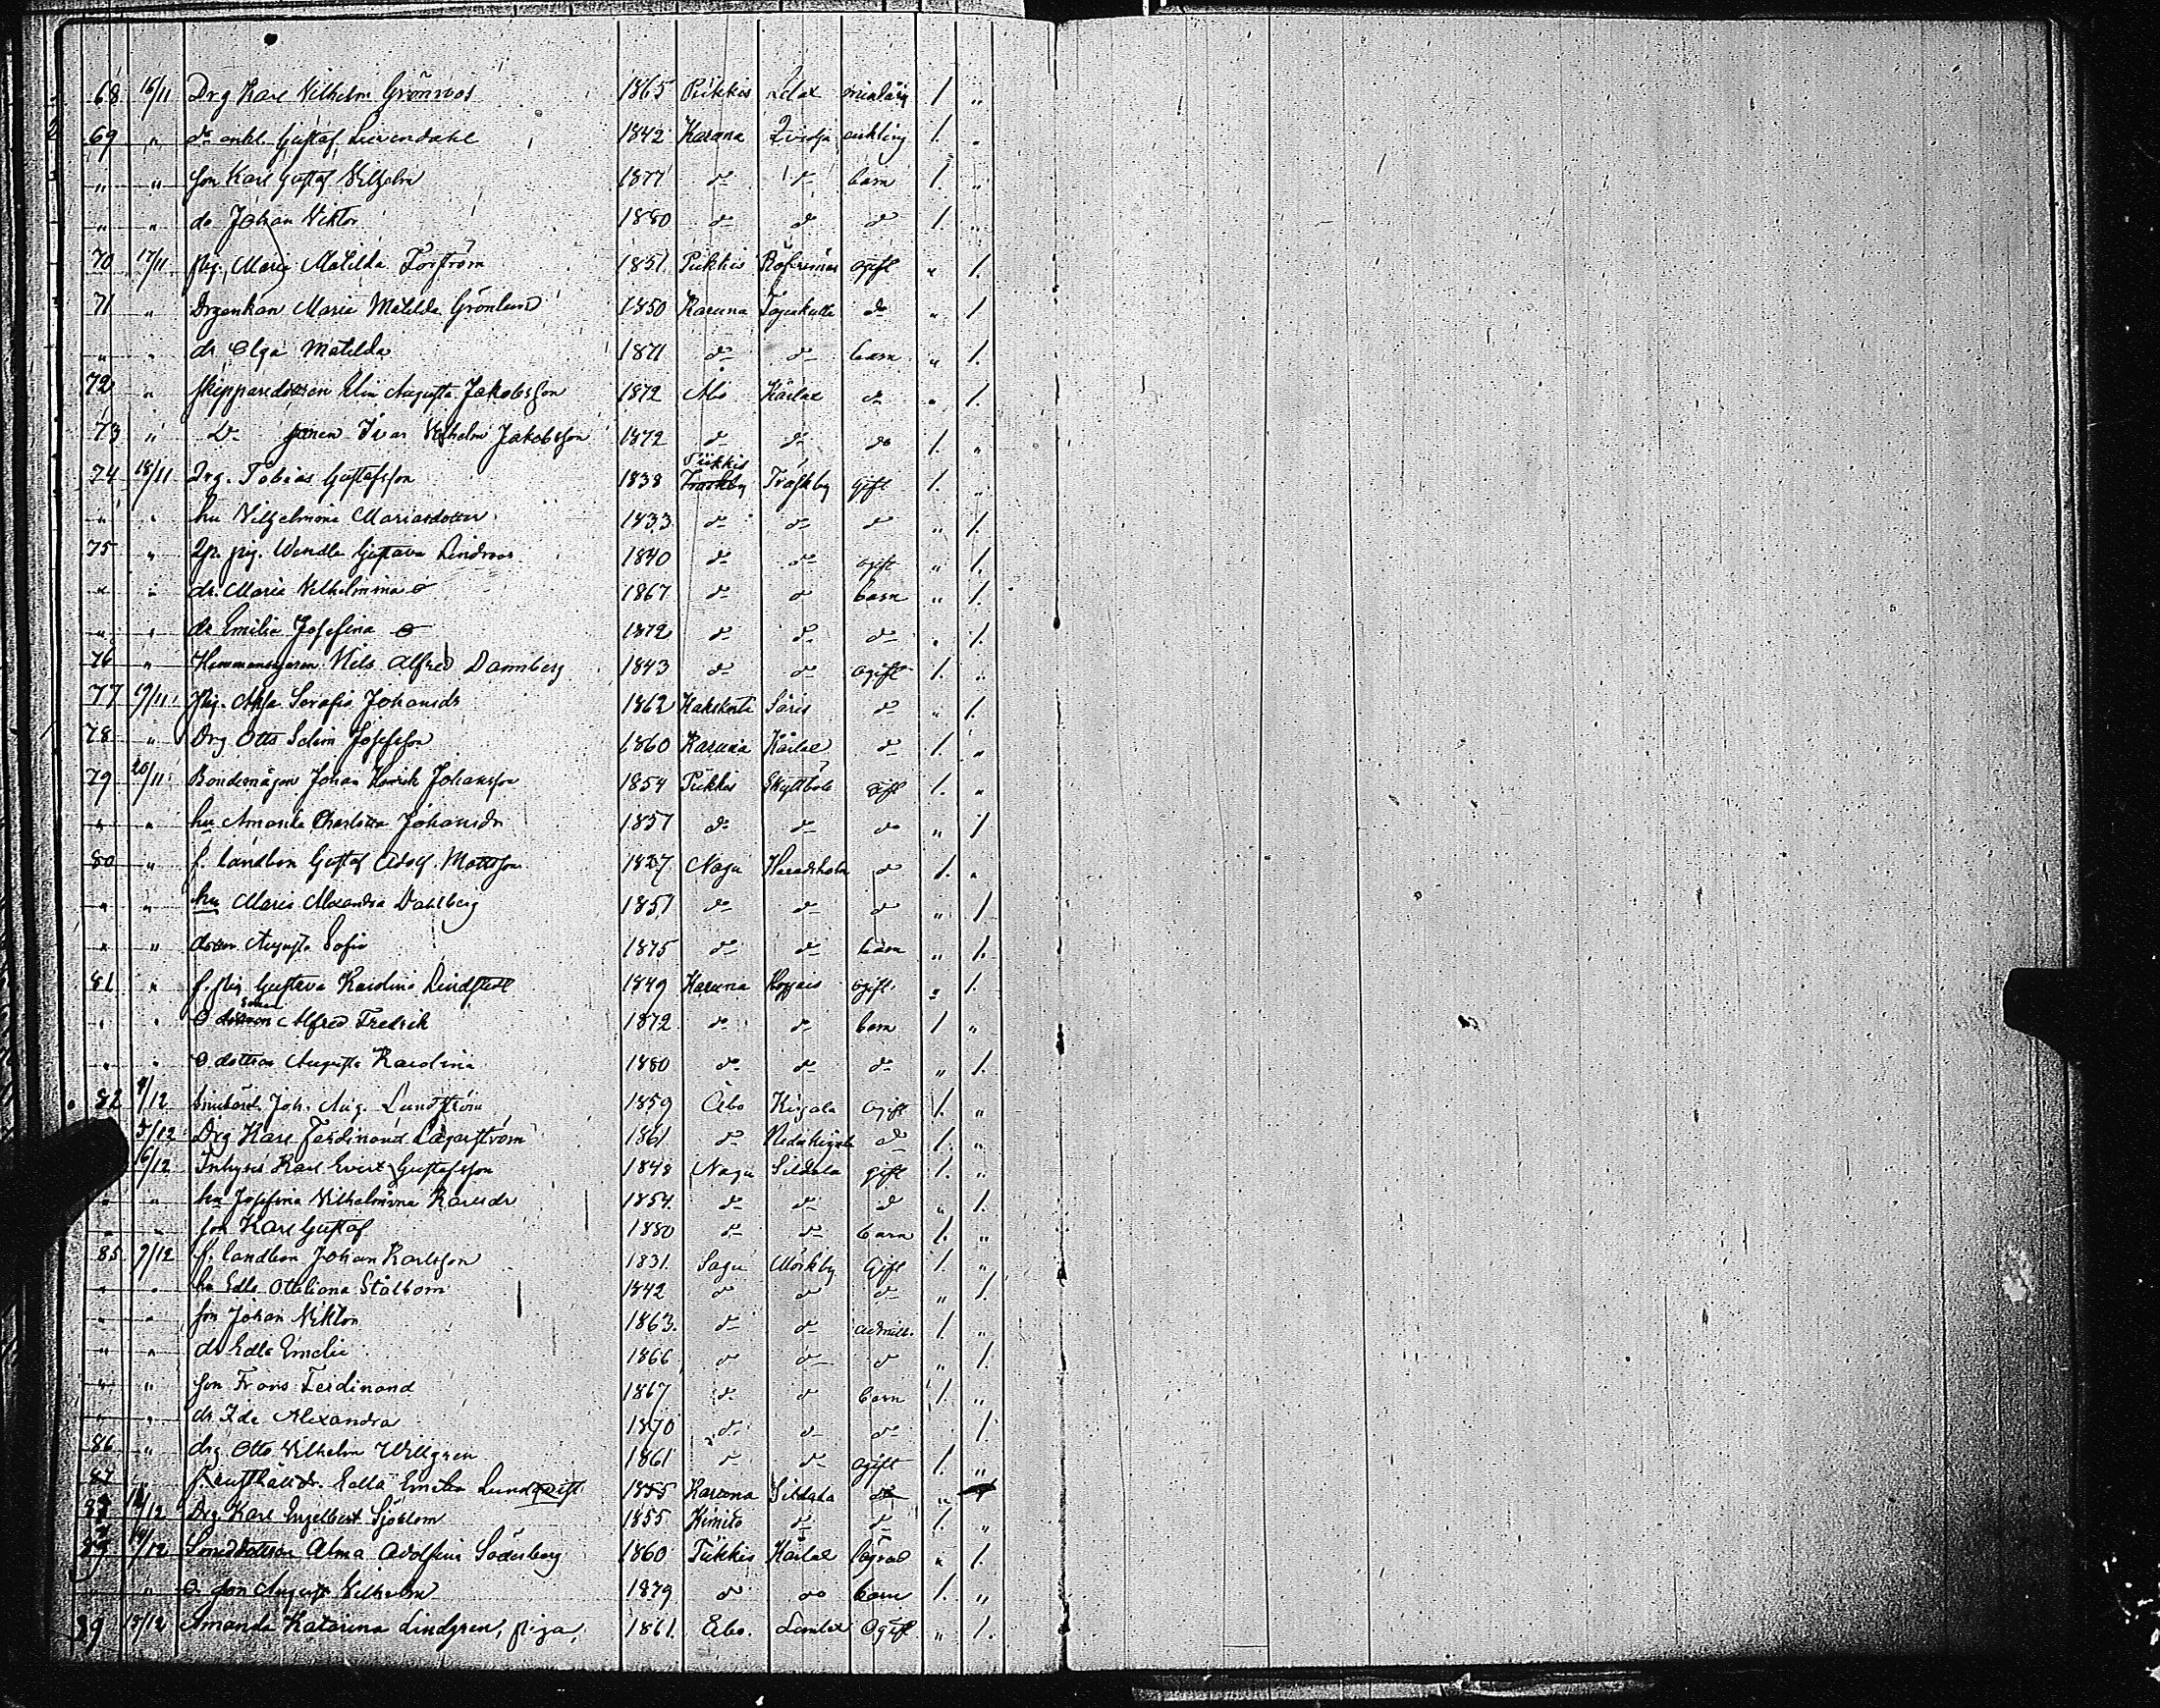 68 16/11 Drg Karl Vilhelm Grönroos 1865 Piikkis Lelax 1. "
69 " do enkl. Gustaf Leivendahl 1842 Karuna enkling 1. "
" " son Karl Gustaf Vilhelm 1877 do do barn 1. "
" " do Johan Viktor 1880 do do do 1. "
70 17/11 pig. Maria Matilda Forström 1851 Piikkis ogift " 1.
71 " Drgenkan Maria Matilda Grönlund 1850 Karuna do " 1
" " dr Olga Matilda 1871 do do barn " 1.
72 " skepparedottren Elin Augusta Jakobsson 1872 Åbo Kärlax do " 1.
73 " Do sonen Ivar Vilhelm Jakobsson 1872 do do do 1. "
74 18/11 Drg. Tobias Gustafsson 1838 Piikkis Träskby gift 1. "
" " hu Vilhelmina Mariasdotter 1833 do do do " 1.
75 " pig. Wendla Gustava Lindroos 1840 do do ogift " 1.
" " dr. Maria Vilhelmina 1867 do do barn " 1.
" " dr Emilia Josefina 1872 do do do " 1.
76 " Hemmansegaren Nils Alfred Dannberg 1843 do do ogift 1. "
77 19/11 Pig. Serafia Johansdr 1862 Kakskerta Säris do " 1.
78 " Drg Otto Selim Josefsson 1860 Karuna Kärlax do 1. "
79 20/11 Bondemågen Johan Henrik Johansson 1854 Piikkis Skyttböle gift 1. "
" " hu Amanda Charlotta Johansdr 1857 do do do " 1
80 " f. landbon Gustaf Adolf Mattsson 1827 Nagu do 1. "
" " hu Maria Alexandra Dahlberg 1851 do do do " 1
" " dottren Augusta Sofia 1875 do do barn " 1.
81 " f. pig Gustava Karolina Lindstedt 1849 Karuna ogift " 1.
" " o sonen Alfred Fredrik 1872 do do barn 1 "
" " o dottren Augusta Karolina 1880 do do do " 1.
82 4/12 Joh. Aug. Lundström 1859 Åbo Kirjala ogift 1. "
5/12 Drg Karl Ferdinand Lagerström 1861 do Nedkirjala do 1. "
6/12 Inhyses Karl Evert Gustafsson 1848 Nagu Sildala gift 1. "
" " hu Josefina Vilhelmina Karlsdr 1854 do do do " 1.
" " son Karl Gustaf 1880 do do barn 1. "
85 9/12 f. landbon Johan Karlsson 1831 Sagu Mörkby Gift 1. "
" " hu Edla Ottiliana Stålbom 1842 do do do " 1.
" " son Johan Viktor 1863. do do admitt. 1. "
" " dr Edla Emelie 1866 do do do " 1.
" " son Frans Ferdinand 1867 do do barn 1. "
" " dr Ida Alexandra 1870 do do do " 1
86 " drg Otto Vilhelm Willgren 1861 do do ogift 1. "
87 " Emilia Lundqvist 1855 Karuna Sildala do "
Drg Karl Engelbert Sjöblom 1855 Kimito do do 1. "
Smeddottren Alma Adolfina Söderberg 1860 Piikkis Kärlax lägrad " 1.
" o son August Vilhelm 1879 do do barn 1. "
89 Amanda Katarina Lindgren, piga, 1861. Åbo. Lemlax Ogift " 1.